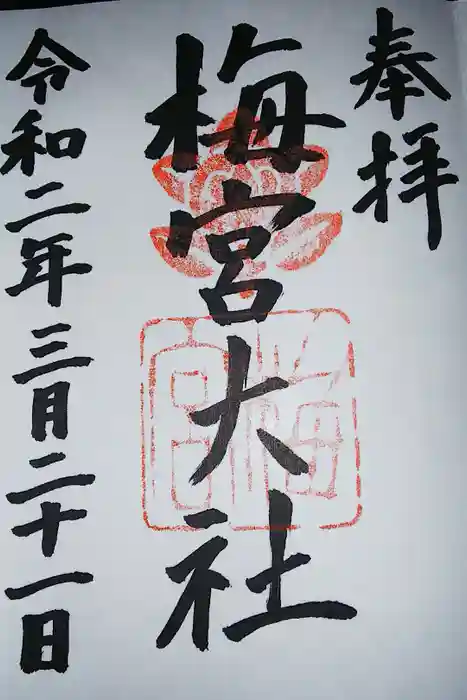 奉拝
梅宮大社
令和二年三月二十一日
梅宮